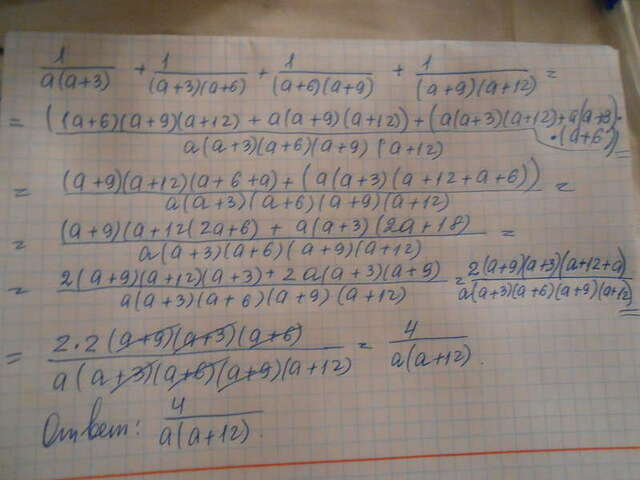 1/(a(a+3)) + 1/((a+3)(a+6)) + 1/((a+6)(a+9)) + 1/((a+9)(a+12)) =
= (((a+6)(a+9)(a+12) + a(a+9)(a+12)) + (a(a+3)(a+12) + a(a+3)·(a+6)))/(a(a+3)(a+6)(a+9)(a+12)) =
= ((a+9)(a+12)(a+6+a) + (a(a+3)(a+12+a+6)))/(a(a+3)(a+6)(a+9)(a+12)) =
= ((a+9)(a+12(2a+6) + a(a+3)(2a+18))/(a(a+3)(a+6)(a+9)(a+12)) =
= (2(a+9)(a+12)(a+3) + 2a(a+3)(a+9))/(a(a+3)(a+6)(a+9)(a+12)) = 2(a+9)(a+3)(a+12+a)/(a(a+3)(a+6)(a+9)(a+12)) =
= 2·2(a+9)(a+3)(a+6)/(a(a+3)(a+6)(a+9)(a+12)) = 4/(a(a+12)).
Ответ: 4/(a(a+12)).